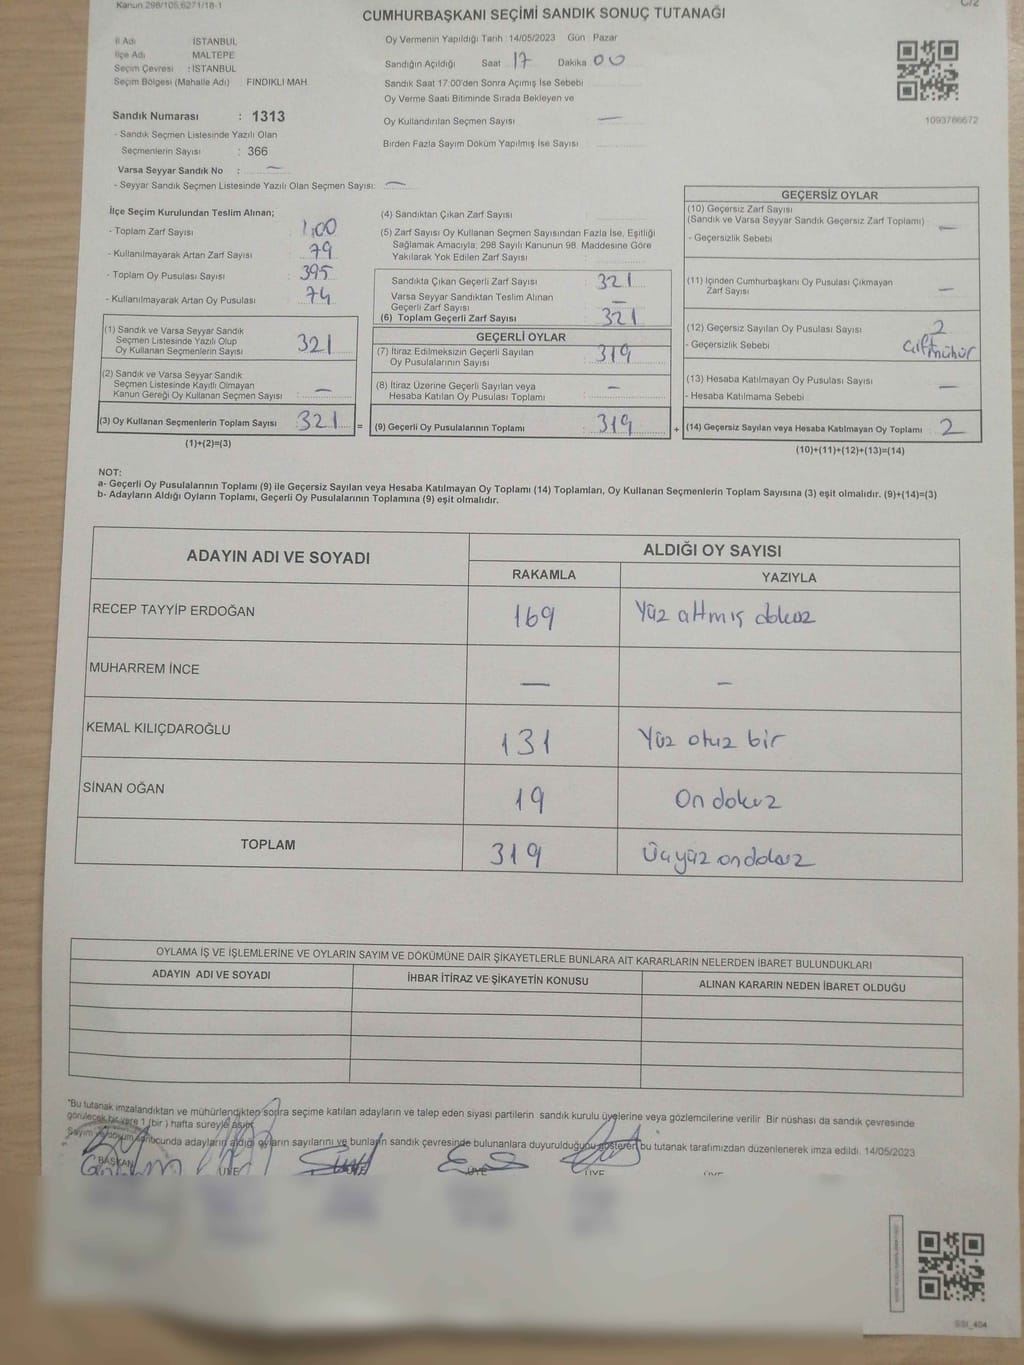 Kanun 298/105,6271/18-1
C/2
CUMHURBAŞKANI SEÇİMİ SANDIK SONUÇ TUTANAĞI
İl Adı İSTANBUL
İlçe Adı MALTEPE
Seçim Çevresi : İSTANBUL
Seçim Bölgesi (Mahalle Adı) FINDIKLI MAH.
Oy Vermenin Yapıldığı Tarih : 14/05/2023 Gün Pazar
Sandığın Açıldığı Saat 17 Dakika 00
Sandık Saat 17:00'den Sonra Açımış İse Sebebi
Oy Verme Saati Bitiminde Sırada Bekleyen ve
Oy Kullandırılan Seçmen Sayısı —
Birden Fazla Sayım Döküm Yapılmış İse Sayısı
1093786672
Sandık Numarası : 1313
- Sandık Seçmen Listesinde Yazılı Olan
Seçmenlerin Sayısı : 366
Varsa Seyyar Sandık No : —
- Seyyar Sandık Seçmen Listesinde Yazılı Olan Seçmen Sayısı: —
İlçe Seçim Kurulundan Teslim Alınan;
- Toplam Zarf Sayısı : 400
- Kullanılmayarak Artan Zarf Sayısı : 79
- Toplam Oy Pusulası Sayısı : 395
- Kullanılmayarak Artan Oy Pusulası : 74
(1) Sandık ve Varsa Seyyar Sandık
Seçmen Listesinde Yazılı Olup
Oy Kullanan Seçmenlerin Sayısı 321
(2) Sandık ve Varsa Seyyar Sandık
Seçmen Listesinde Kayıtlı Olmayan
Kanun Gereği Oy Kullanan Seçmen Sayısı : —
(3) Oy Kullanan Seçmenlerin Toplam Sayısı : 321 =
(1)+(2)=(3)
(4) Sandıktan Çıkan Zarf Sayısı
(5) Zarf Sayısı Oy Kullanan Seçmen Sayısından Fazla İse, Eşitliği
Sağlamak Amacıyla, 298 Sayılı Kanunun 98. Maddesine Göre
Yakılarak Yok Edilen Zarf Sayısı
Sandıkta Çıkan Geçerli Zarf Sayısı 321
Varsa Seyyar Sandıktan Teslim Alınan
Geçerli Zarf Sayısı —
(6) Toplam Geçerli Zarf Sayısı 321
GEÇERLİ OYLAR
(7) İtiraz Edilmeksizin Geçerli Sayılan
Oy Pusulalarının Sayısı 319
(8) İtiraz Üzerine Geçerli Sayılan veya
Hesaba Katılan Oy Pusulası Toplamı —
(9) Geçerli Oy Pusulalarının Toplamı : 319 +
GEÇERSİZ OYLAR
(10) Geçersiz Zarf Sayısı
(Sandık ve Varsa Seyyar Sandık Geçersiz Zarf Toplamı) —
- Geçersizlik Sebebi
(11) İçinden Cumhurbaşkanı Oy Pusulası Çıkmayan
Zarf Sayısı —
(12) Geçersiz Sayılan Oy Pusulası Sayısı 2
- Geçersizlik Sebebi çift mühür
(13) Hesaba Katılmayan Oy Pusulası Sayısı —
- Hesaba Katılmama Sebebi
(14) Geçersiz Sayılan veya Hesaba Katılmayan Oy Toplamı 2
(10)+(11)+(12)+(13)=(14)
NOT:
a- Geçerli Oy Pusulalarının Toplamı (9) ile Geçersiz Sayılan veya Hesaba Katılmayan Oy Toplamı (14) Toplamları, Oy Kullanan Seçmenlerin Toplam Sayısına (3) eşit olmalıdır. (9)+(14)=(3)
b- Adayların Aldığı Oyların Toplamı, Geçerli Oy Pusulalarının Toplamına (9) eşit olmalıdır.
ADAYIN ADI VE SOYADI ALDIĞI OY SAYISI
RAKAMLA YAZIYLA
RECEP TAYYİP ERDOĞAN 169 Yüz altmış dokuz
MUHARREM İNCE — —
KEMAL KILIÇDAROĞLU 131 Yüz otuz bir
SİNAN OĞAN 19 On dokuz
TOPLAM 319 Üçyüz ondokuz
OYLAMA İŞ VE İŞLEMLERİNE VE OYLARIN SAYIM VE DÖKÜMÜNE DAİR ŞİKAYETLERLE BUNLARA AİT KARARLARIN NELERDEN İBARET BULUNDUKLARI
ADAYIN ADI VE SOYADI İHBAR İTİRAZ VE ŞİKAYETİN KONUSU ALINAN KARARIN NEDEN İBARET OLDUĞU
"Bu tutanak imzalandıktan ve mühürlendikten sonra seçime katılan adayların ve talep eden siyasi partilerin sandık kurulu üyelerine veya gözlemcilerine verilir Bir nüshası da sandık çevresinde
görülecek bir yere 1 (bir) hafta süreyle asılır.
Sayım ve döküm sonucunda adayların aldığı oyların sayılarını ve bunların sandık çevresinde bulunanlara duyurulduğunu gösteren bu tutanak tarafımızdan düzenlenerek imza edildi. 14/05/2023
BAŞKAN ÜYE ÜYE ÜYE ÜYE ÜYE
SSI_404